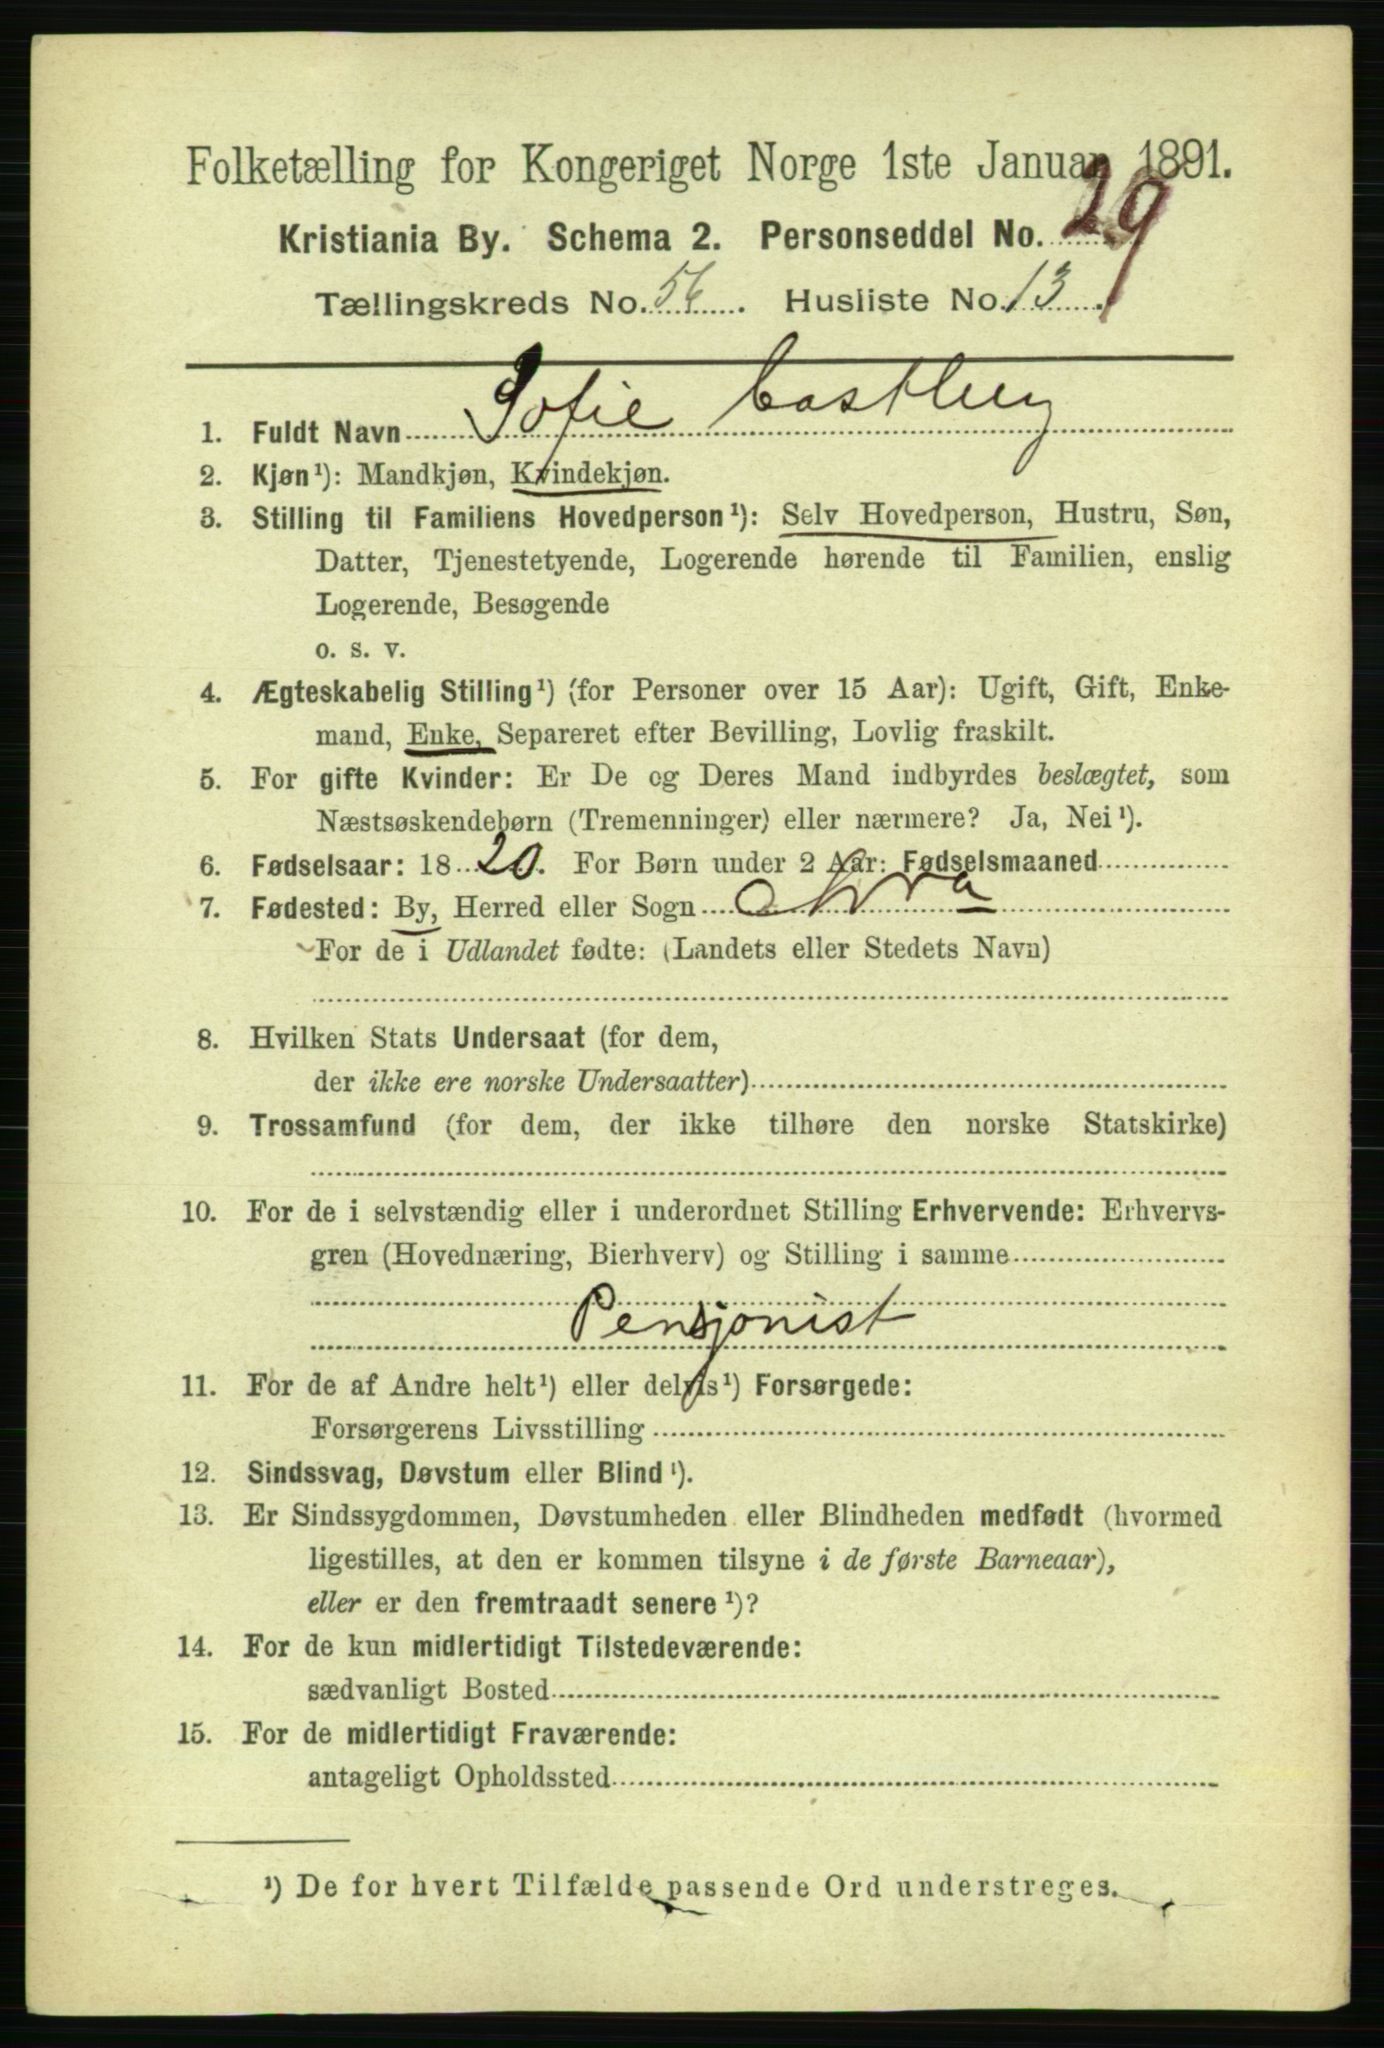 Folketælling for Kongeriget Norge 1ste Januar 1891.
Kristiania By. Schema 2. Personseddel No. 29
Tællingskreds No. 56. Husliste No. 13.
1. Fuldt Navn Sofie Castberg
2. Kjøn¹): Mandkjøn, Kvindekjøn.
3. Stilling til Familiens Hovedperson¹): Selv Hovedperson, Hustru, Søn,
Datter, Tjenestetyende, Logerende hørende til Familien, enslig
Logerende, Besøgende
o. s. v.
4. Ægteskabelig Stilling¹) (for Personer over 15 Aar): Ugift, Gift, Enke-
mand, Enke, Separeret efter Bevilling, Lovlig fraskilt.
5. For gifte Kvinder: Er De og Deres Mand indbyrdes beslægtet, som
Næstsøskendebørn (Tremenninger) eller nærmere? Ja, Nei¹).
6. Fødselsaar: 1820. For Børn under 2 Aar: Fødselsmaaned
7. Fødested: By, Herred eller Sogn Xrra
For de i Udlandet fødte: (Landets eller Stedets Navn)
8. Hvilken Stats Undersaat (for dem,
der ikke ere norske Undersaatter)
9. Trossamfund (for dem, der ikke tilhøre den norske Statskirke)
10. For de i selvstændig eller i underordnet Stilling Erhvervende: Erhvervs-
gren (Hovednæring, Bierhverv) og Stilling i samme
Pensjonist
11. For de af Andre helt¹) eller delvis¹) Forsørgede:
Forsørgerens Livsstilling
12. Sindssvag, Døvstum eller Blind¹).
13. Er Sindssygdommen, Døvstumheden eller Blindheden medfødt (hvormed
ligestilles, at den er kommen tilsyne i de første Barneaar),
eller er den fremtraadt senere¹)?
14. For de kun midlertidigt Tilstedeværende:
sædvanligt Bosted
15. For de midlertidigt Fraværende:
antageligt Opholdssted
¹) De for hvert Tilfælde passende Ord understreges.